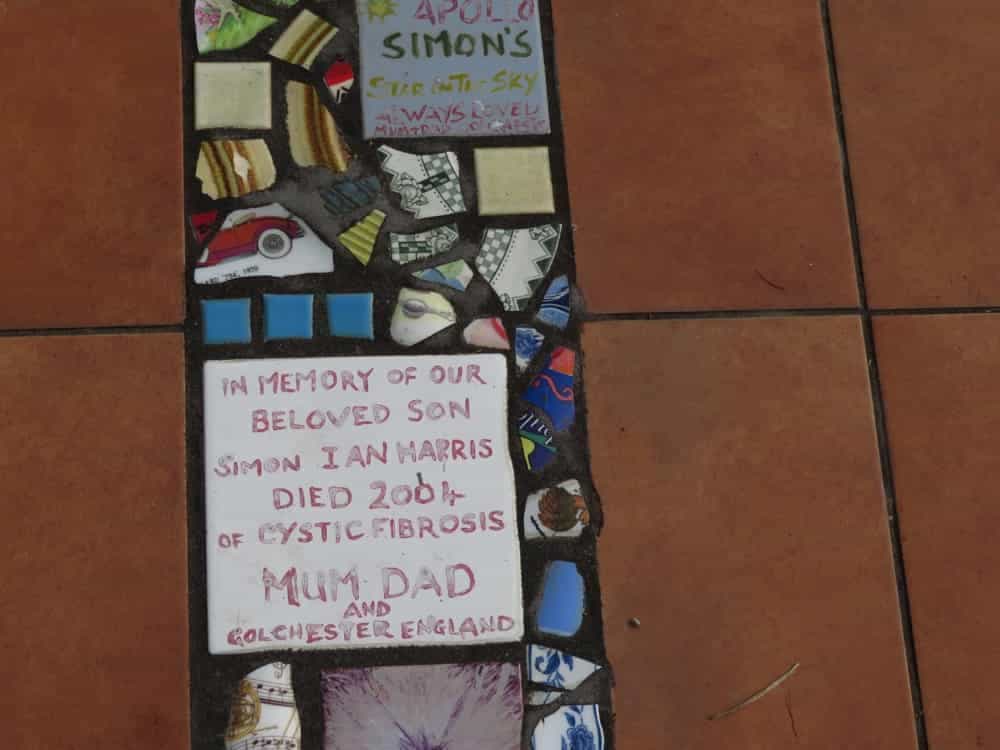 APOLLO
SIMON'S
STAR IN THE SKY
ALWAYS LOVED
MUM + DAD
IN MEMORY OF OUR
BELOVED SON
SIMON IAN HARRIS
DIED 2004
OF CYSTIC FIBROSIS
MUM DAD
AND
COLCHESTER ENGLAND